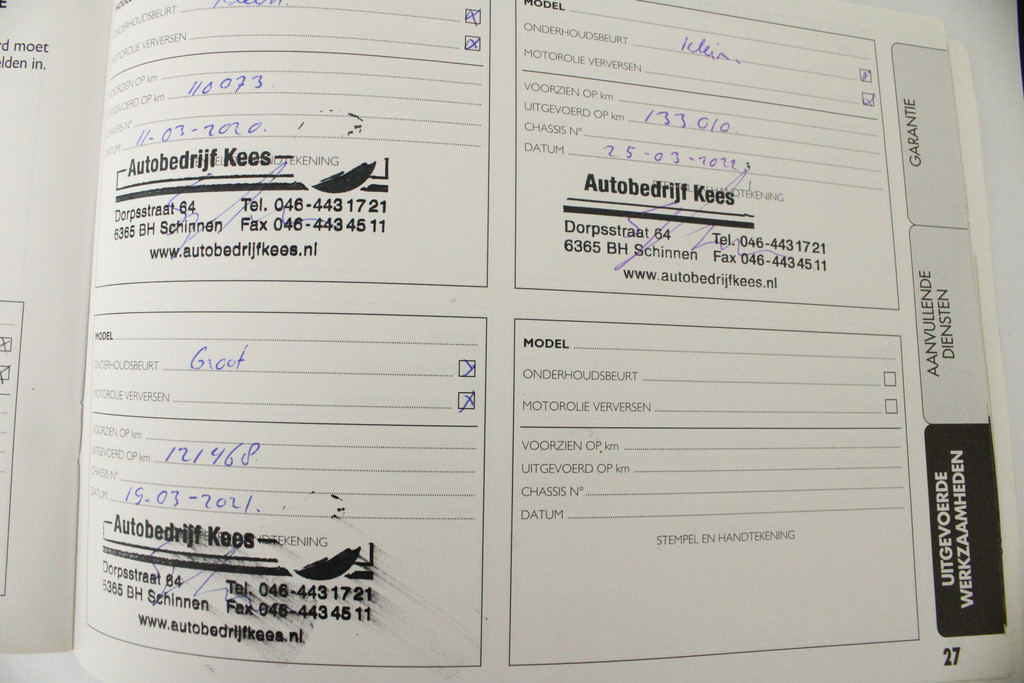 rd moet
lden in.
Klein.
ONDERHOUDSBEURT
MOTOROLIE VERVERSEN
VOORZIEN OP km
UITGEVOERD OP km 110073
CHASSIS N°
DATUM 11-03-2020.
STEMPEL EN HANDTEKENING
Autobedrijf Kees
Dorpsstraat 64 Tel. 046-4431721
6365 BH Schinnen Fax 046-4434511
www.autobedrijfkees.nl
MODEL
ONDERHOUDSBEURT Klein.
MOTOROLIE VERVERSEN
VOORZIEN OP km
UITGEVOERD OP km 133010
CHASSIS N°
DATUM 25-03-2022
STEMPEL EN HANDTEKENING
Autobedrijf Kees
Dorpsstraat 64 Tel. 046-4431721
6365 BH Schinnen Fax 046-4434511
www.autobedrijfkees.nl
MODEL
ONDERHOUDSBEURT Groot
MOTOROLIE VERVERSEN
VOORZIEN OP km
UITGEVOERD OP km 121468
CHASSIS N°
DATUM 19-03-2021.
HANDTEKENING
Autobedrijf Kees
Dorpsstraat 64 Tel. 046-4431721
6365 BH Schinnen Fax 046-4434511
www.autobedrijfkees.nl
MODEL
ONDERHOUDSBEURT
MOTOROLIE VERVERSEN
VOORZIEN OP km
UITGEVOERD OP km
CHASSIS N°
DATUM
STEMPEL EN HANDTEKENING
GARANTIE
AANVULLENDE
DIENSTEN
UITGEVOERDE
WERKZAAMHEDEN
27